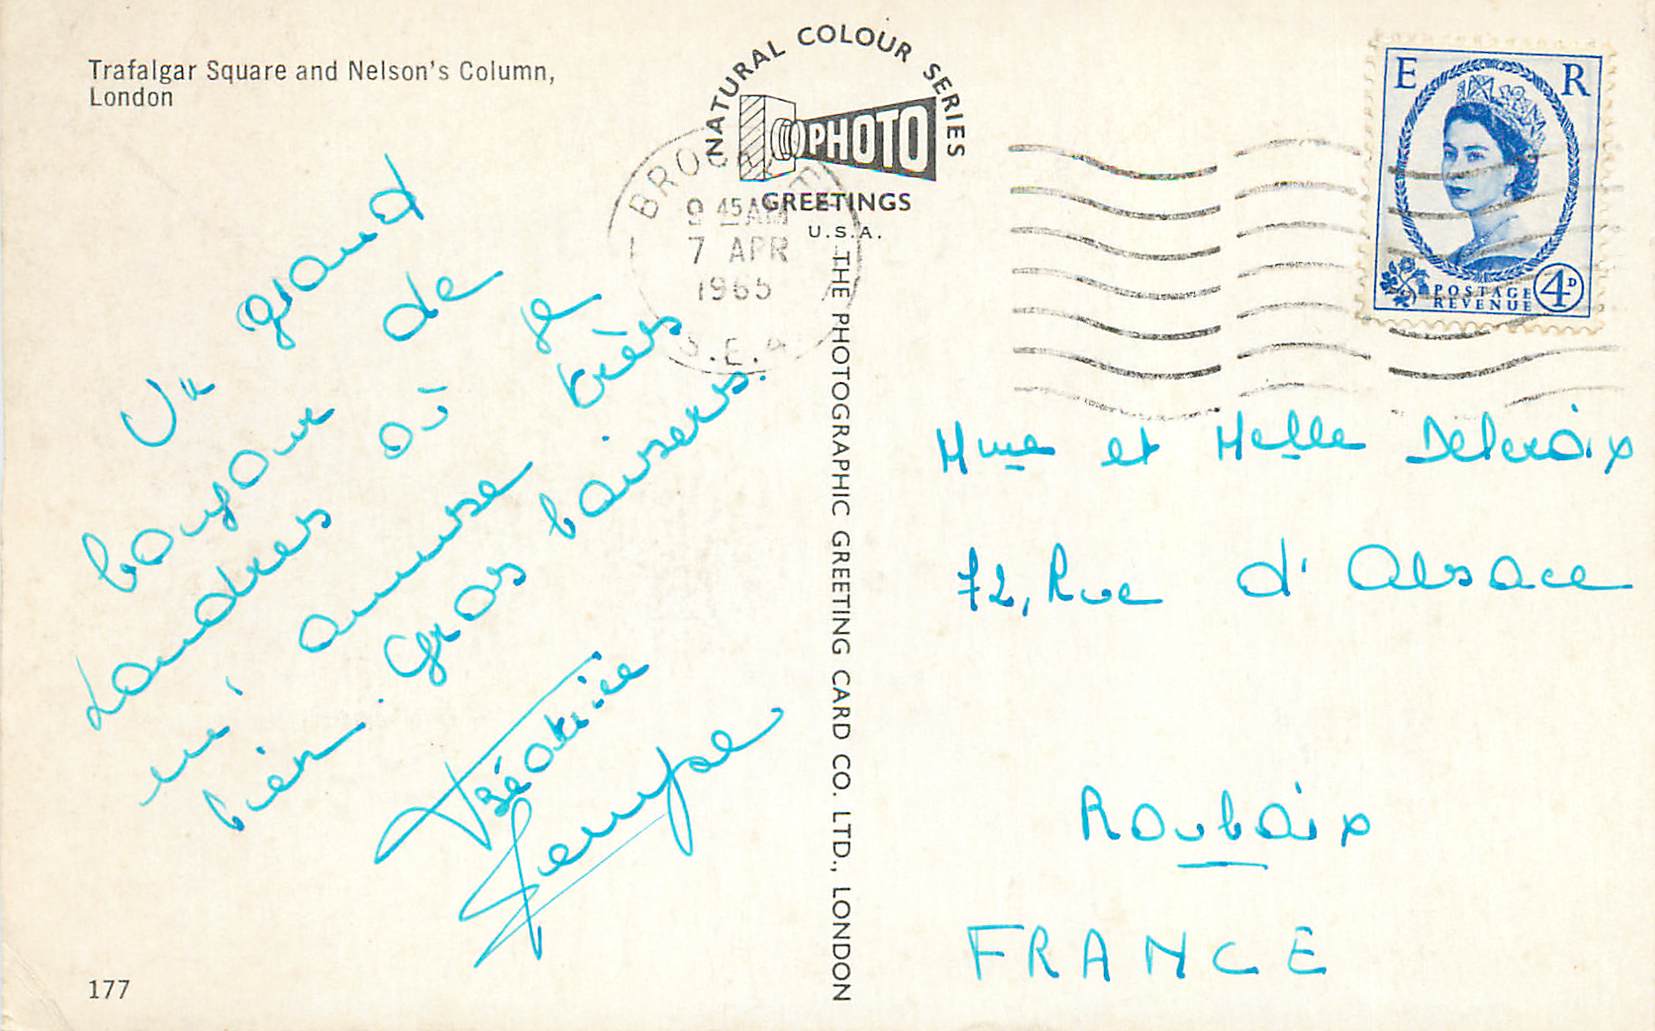 Trafalgar Square and Nelson's Column,
London
NATURAL COLOUR SERIES
PHOTO
GREETINGS
U.S.A.
BROC
9 45 AM
7 APR
1965
S.E.4
E R
POSTAGE
REVENUE
4D
Un grand
bonjour de
Londres où je
m'amuse très
bien. Gros baisers.
Béatrice
THE PHOTOGRAPHIC GREETING CARD CO. LTD., LONDON
Mme et Melle Delcroix
72, Rue d'Alsace
Roubaix
FRANCE
177